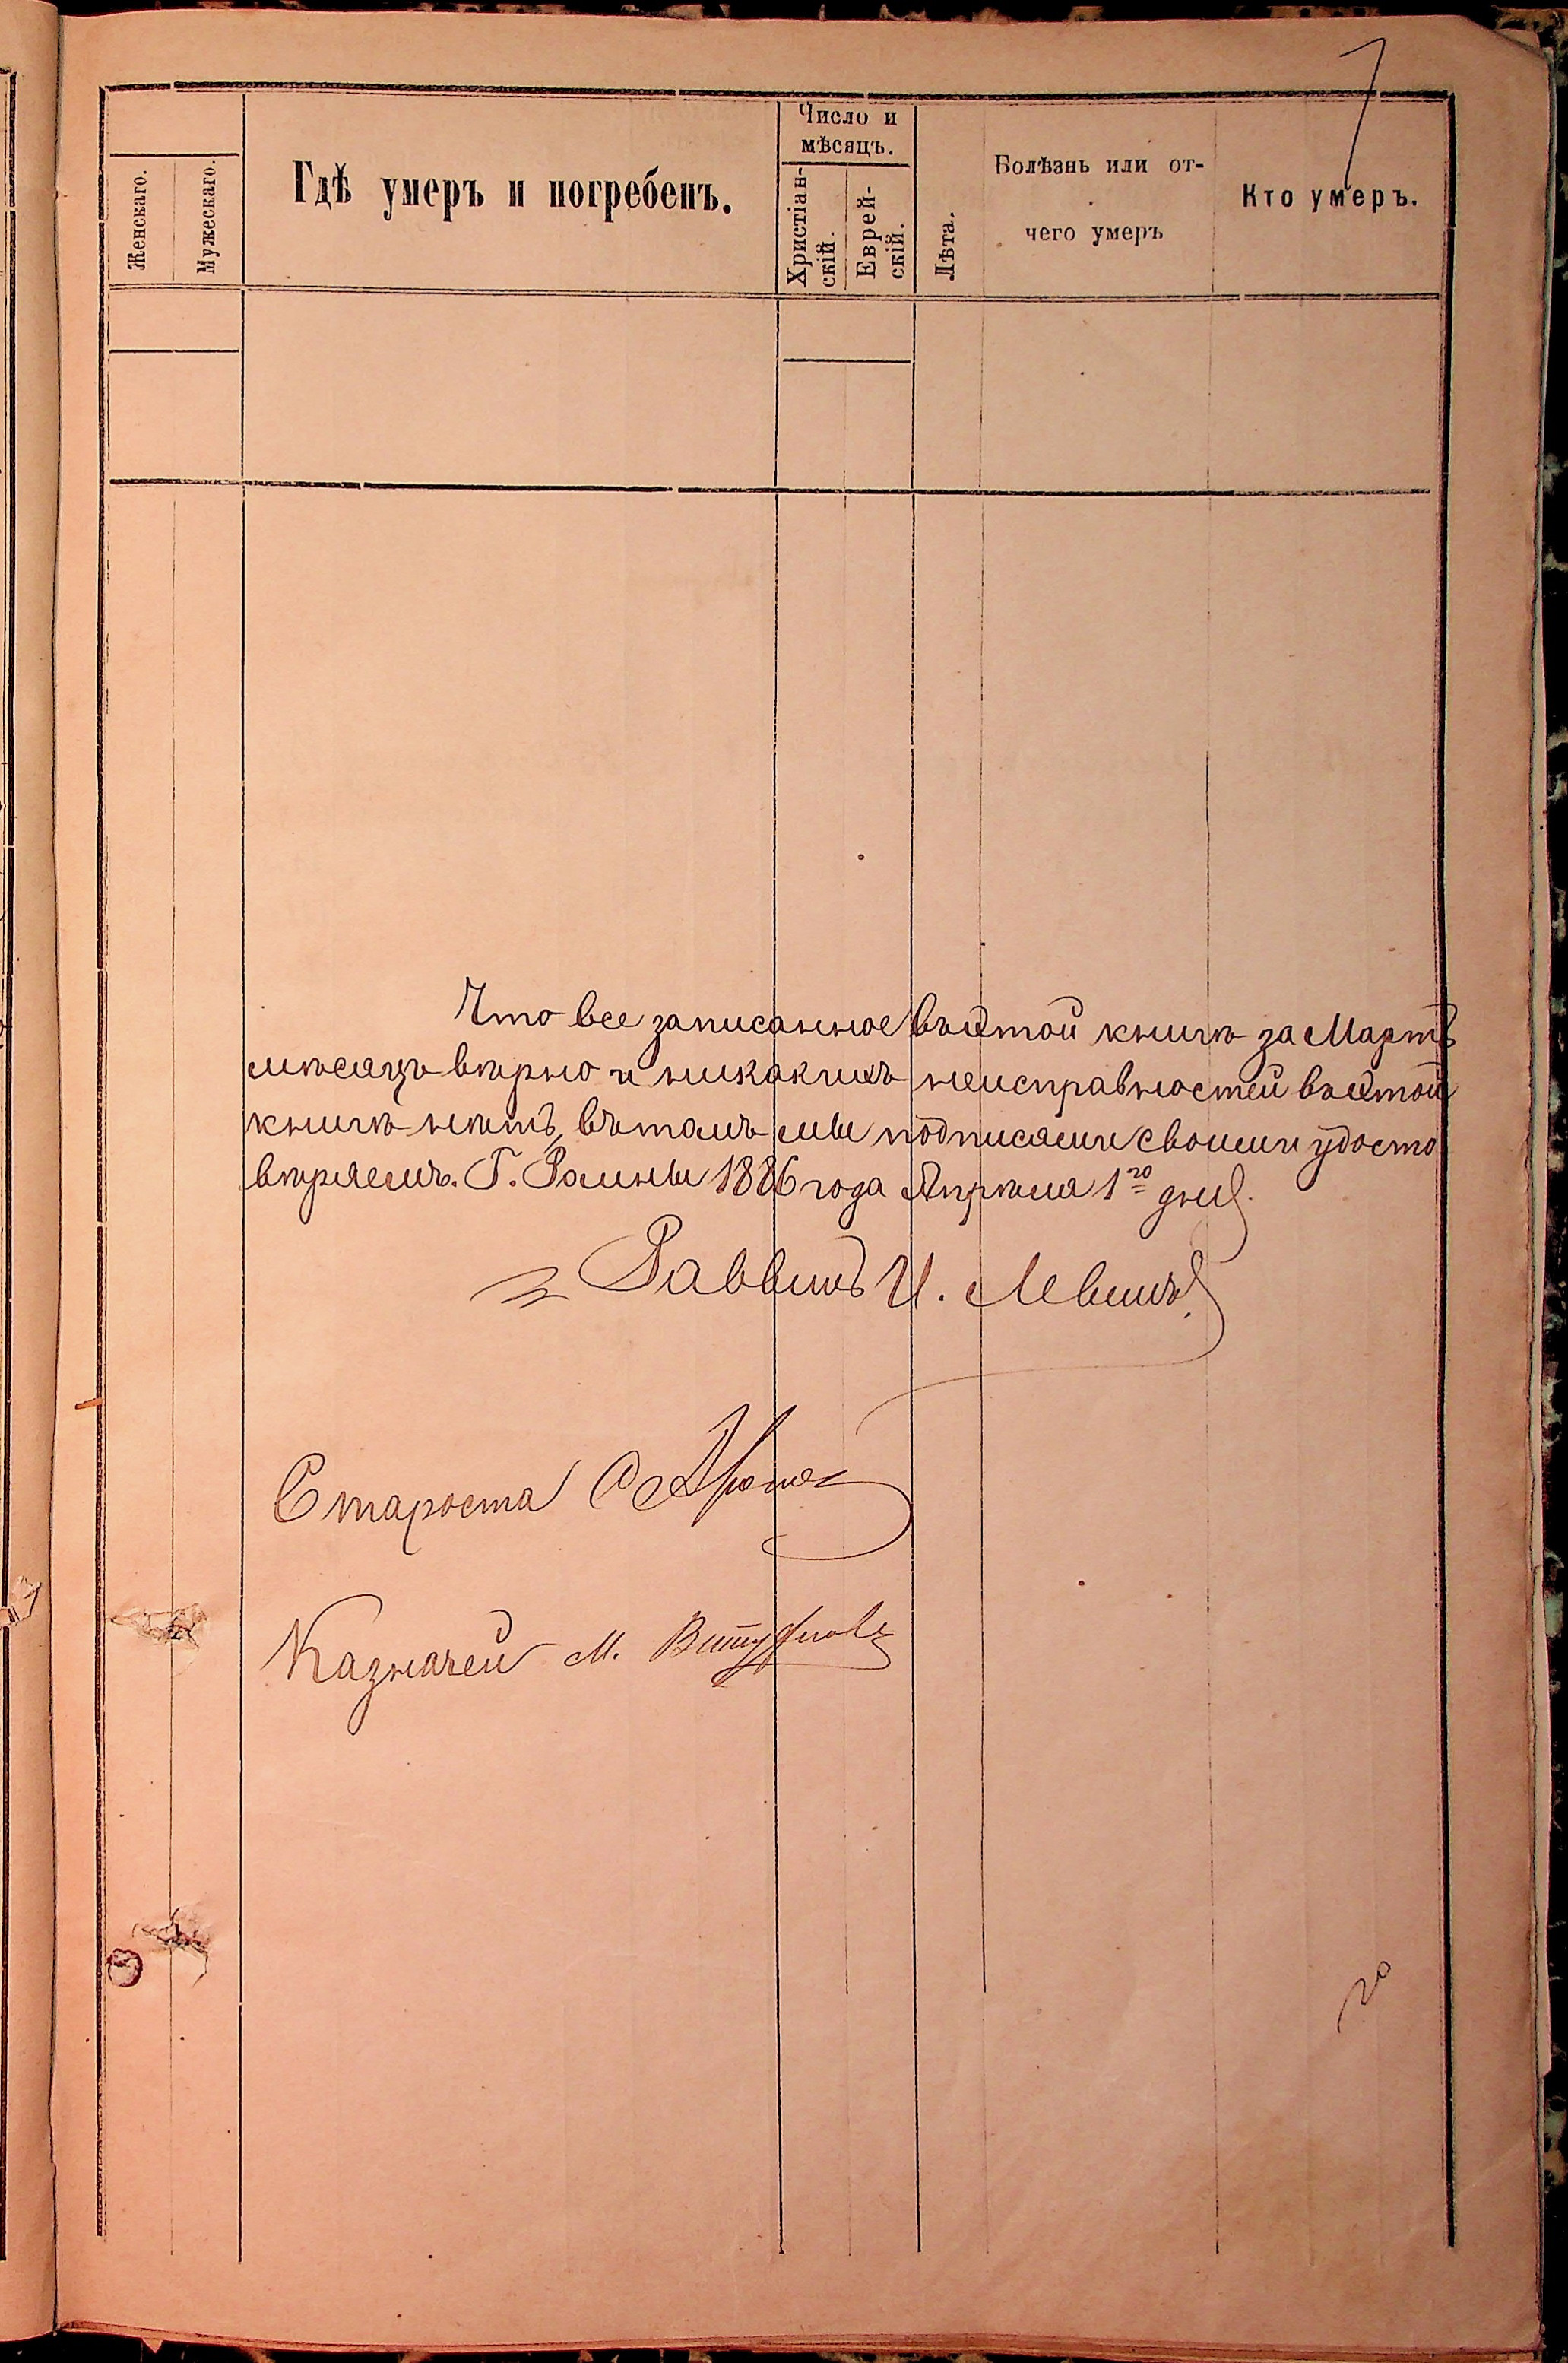 7
Женскаго.
Мужескаго.
Гдѣ умеръ и погребенъ.
Число и
мѣсяцъ.
Христіан-
скій.
Еврей-
скій.
Лѣта.
Болѣзнь или от-
чего умеръ
Кто умеръ.
Что все записанное въ этой книгѣ за Мартъ
мѣсяцъ вѣрно и никакихъ неисправностей въ этой
книгѣ нѣтъ, въ томъ мы подписями своими удосто
вѣряемъ. Г. Ромны 1886 года Апрѣля 1го дня.
Раввинъ И. Левинъ
Староста
Казначей М.
20